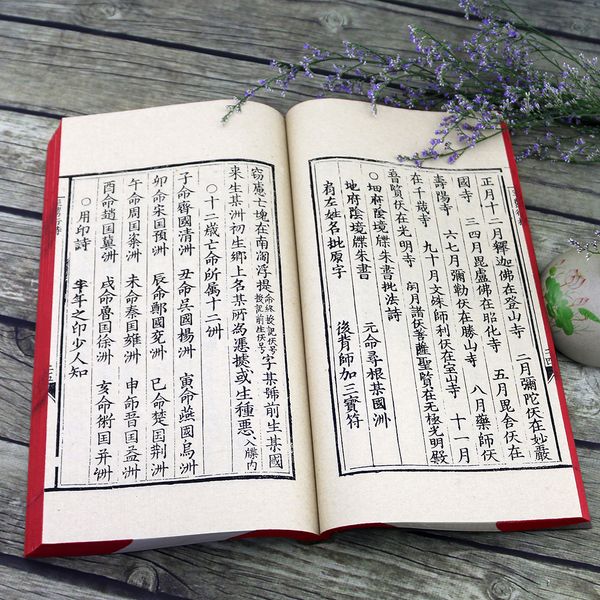 正月十二月釋迦佛在登山寺 二月彌陀伏在妙嚴
國寺 三四月毘盧佛在昭化寺 五月毘舍伏在
壽陽寺 六七月彌勒伏在勝山寺 八月藥師伏
在千歲寺 九十月文殊師利伏在宝山寺 十一月
普賢伏在光明寺 闰月諸伏菩薩聖賢在无極光明殿
○ 府陰境牒朱書批法詩
地府陰境牒朱書 元命尋根某國洲
扇左姓名批原字 後背師加三寶符
窃慮亡塊在南閻浮提 字某號前生某國
來生某洲初生鄉上名某所為憑據或生種悪 入牒内
○十二歲亡命所属十二洲
子命齊國清洲 丑命吳国楊洲 寅命燕國烏洲
卯命宋国預洲 辰命鄭國兖洲 巳命楚国荆洲
午命周国梁洲 未命秦国雍洲 申命晋国益洲
酉命趙国冀洲 戌命魯国徐洲 亥命衛国并洲
○用印詩 半年之印少人知